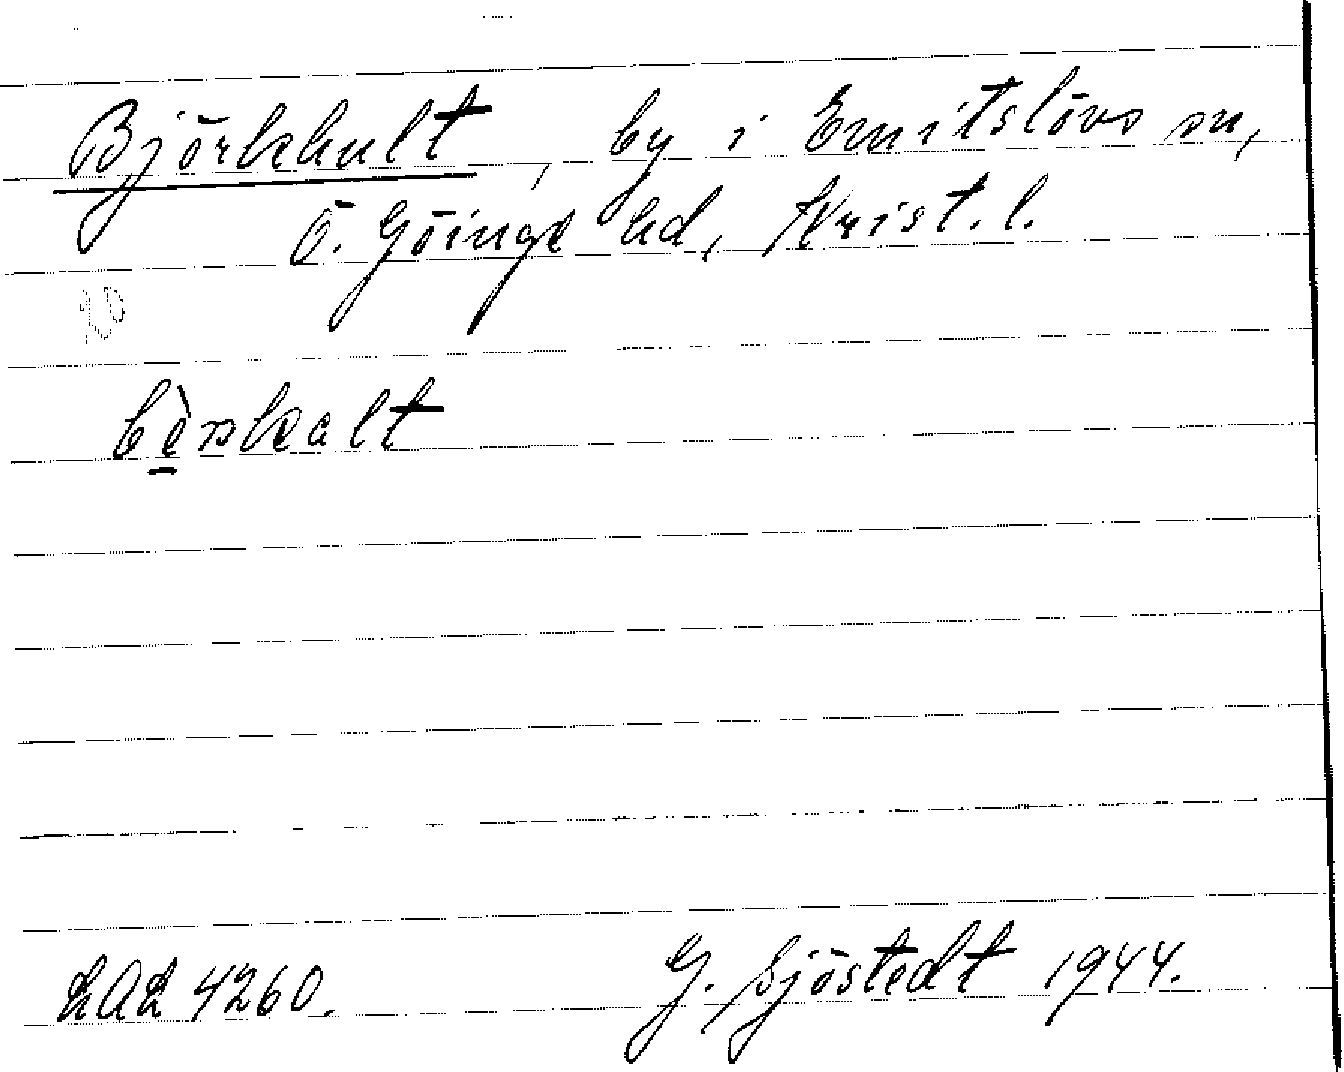 Björkhult, by i Emitslövs sn,
Ö. Göinge hd, Krist. l.
LAL 4260. G. Sjöstedt 1944.